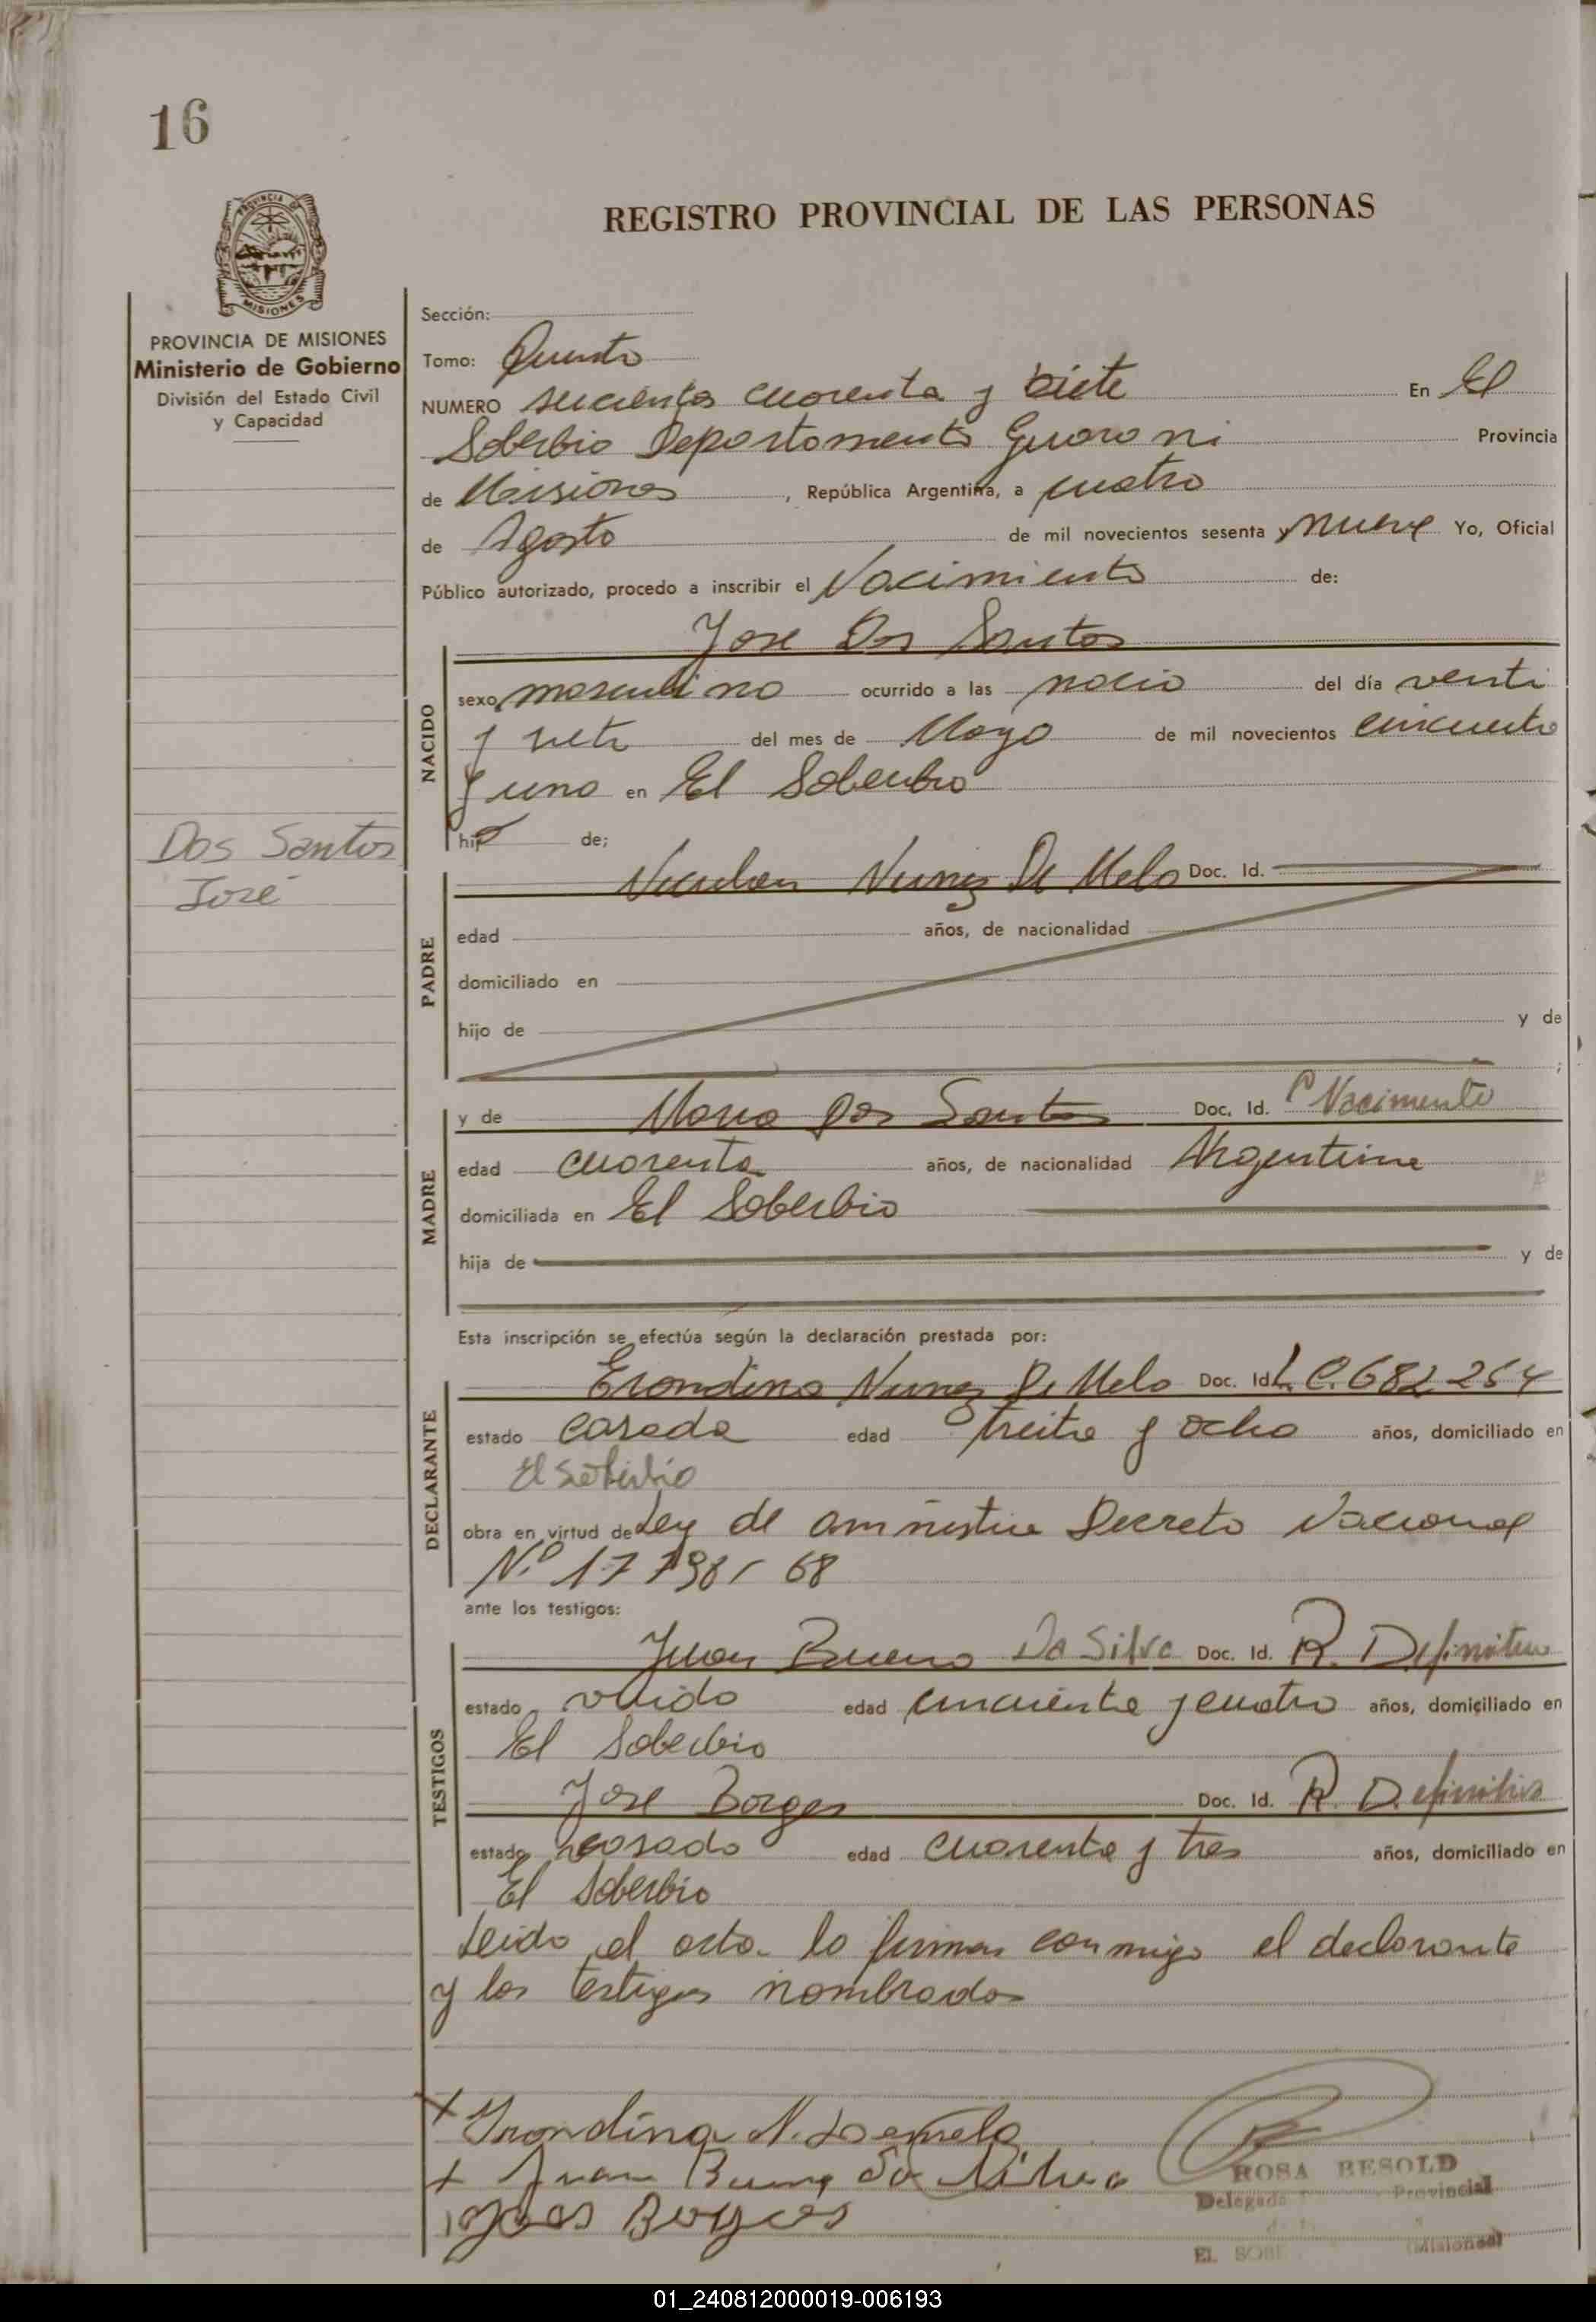 16
REGISTRO PROVINCIAL DE LAS PERSONAS
PROVINCIA DE
MISIONES
PROVINCIA DE MISIONES
Ministerio de Gobierno
División del Estado Civil
y Capacidad
Dos Santos
José
Sección:
Tomo: Quinto
NUMERO seicientos cuarenta y siete En El
Soberbio Departamento Guarani Provincia
de Misiones, República Argentina, a cuatro
de Agosto de mil novecientos sesenta y nueve Yo, Oficial
Público autorizado, procedo a inscribir el Nacimiento de:
Jose Dos Santos
NACIDO
sexo masculino ocurrido a las nacio del día venti
y siete del mes de Mayo de mil novecientos cincuenta
y uno en El Soberbio
hijo de;
PADRE
Nunes De Melo Doc. Id.
edad años, de nacionalidad
domiciliado en
hijo de y de
;
MADRE
y de Maria Dos Santos Doc. Id. P Nacimiento
edad cuarenta años, de nacionalidad Argentina
domiciliada en El Soberbio
hija de y de
Esta inscripción se efectúa según la declaración prestada por:
DECLARANTE
Erondina Nunes De Melo Doc. Id L.C. 682 254
estado casada edad treita y ocho años, domiciliado en
El Soberbio
obra en virtud de Ley de amnistia Decreto Nacional
Nº 17798/68
ante los testigos:
TESTIGOS
Juan Bueno Da Silva Doc. Id. R. Definitiva
estado viudo edad cincuenta y cuatro años, domiciliado en
El Soberbio
Jose Borges Doc. Id. R. Definitiva
estado casado edad cuarenta y tres años, domiciliado en
El Soberbio
Leido el acta la firman conmigo el declarante
y los testigos nombrados
x Irondina N. Demelo
x Juan Bueno Da Silva
Borges
ROSA BESOLD
Delegada Provincial
EL SOBE (Misiones)
01_240812000019-006193